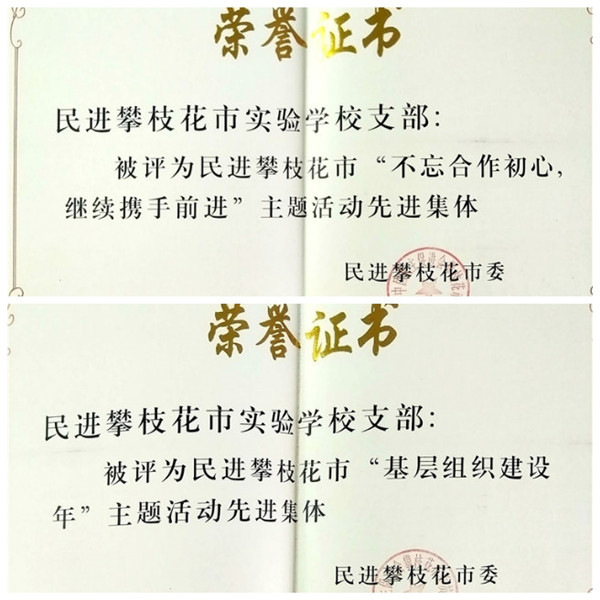 荣誉证书
民进攀枝花市实验学校支部：
被评为民进攀枝花市“不忘合作初心，
继续携手前进”主题活动先进集体
民进攀枝花市委
荣誉证书
民进攀枝花市实验学校支部：
被评为民进攀枝花市“基层组织建设
年”主题活动先进集体
民进攀枝花市委